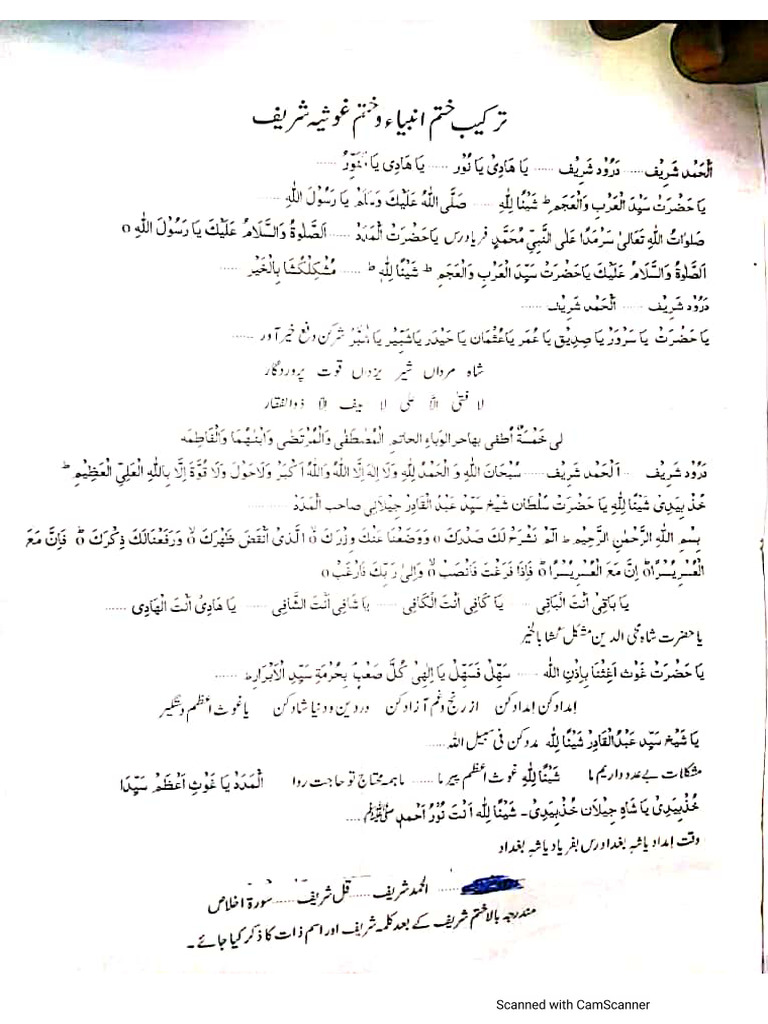 ترکیب ختم انبیاء و ختم غوثیہ شریف
اَلْحَمْد شَرِیْف ..... دَرُوْد شَرِیْف ..... یَا هَادِیْ یَا نُوْر ..... یَا هَادِی یَا مُنَوِّرُ .....
یَا حَضْرَتْ سَیِّدَ الْعَرَبِ وَالْعَجَمِ ؕ شَیْئًا لِلّٰهِ ..... صَلَّی اللّٰهُ عَلَیْكَ وَسَلَّمْ یَا رَسُوْلَ اللّٰهِ
صَلَوَاتُ اللّٰهِ تَعَالٰی سَرْمَدًا عَلَی النَّبِیِّ مُحَمَّدٍ فریاد رس یَا حَضْرَتْ اَلْمَدَدْ ..... اَلصَّلٰوةُ وَالسَّلَامُ عَلَیْكَ یَا رَسُوْلَ اللّٰهِ o
اَلصَّلٰوةُ وَالسَّلَامُ عَلَیْكَ یَا حَضْرَتْ سَیِّدَ الْعَرَبِ وَالْعَجَمِ ؕ شَیْئًا لِلّٰهِ ؕ ..... مُشْکِلْکُشَا بِالْخَیْر .....
دَرُوْد شَرِیْف ..... اَلْحَمْد شَرِیْف .....
یَا حَضْرَتْ یَا سَرْوَرْ یَا صِدِیْق یَا عُمَر یَا عُثْمَان یَا حَیْدَر یَا شَبِّیْر یَا شَبَّرْ شرکن دفع خیر آور .....
شاہ مرداں شیر یزداں قوت پروردگار
لا فتیٰ الّا علی لا سیف الّا ذوالفقار
لِی خَمْسَةٌ اُطْفِی بِهَا حر الْوَبَاءِ الحاتم اَلْمُصْطَفٰی وَالْمُرْتَضٰی وَابْنَهُمَا وَالْفَاطِمَه
دَرُوْد شَرِیْف ..... اَلْحَمد شَرِیْف ..... سُبْحَانَ اللّٰهِ وَ الْحَمْدُ لِلّٰهِ وَلَا اِلٰهَ اِلَّا اللّٰهُ وَاللّٰهُ اَکْبَرُ وَلَا حَوْلَ وَلَا قُوَّةَ اِلَّا بِاللّٰهِ الْعَلِیِّ الْعَظِیْمِ ؕ
خُذْ بِیَدِیْ شَیْئًا لِلّٰهِ یَا حَضْرَتْ سُلْطَان شَیْخ سَیِّد عَبْدُ الْقَادِرْ جِیْلَانِی صَاحب اَلْمَدَدْ
بِسْمِ اللّٰهِ الرَّحْمٰنِ الرَّحِیْمِ ؕ اَلَمْ نَشْرَحْ لَكَ صَدْرَكَ o وَوَضَعْنَا عَنْكَ وِزْرَكَ o الَّذِیْ اَنْقَضَ ظَهْرَكَ o وَرَفَعْنَالَكَ ذِکْرَكَ o فَاِنَّ مَعَ
الْعُسْرِیُسْرًا o اِنَّ مَعَ الْعُسْرِیُسْرًا o فَاِذَا فَرَغْتَ فَانْصَبْ o وَاِلٰی رَبِّكَ فَارْغَبْ o
یَا بَاقِیْ اَنْتَ الْبَاقِی ..... یَا کَافِی اَنْتَ الْکَافِی ..... یَا شَافِی اَنْتَ الشَّافِی ..... یَا هَادِیْ اَنْتَ الْهَادِی .....
یا حضرت شاہ محی الدین مشکل کشا بالخیر
یَا حَضْرَتْ غَوْث اَغِثْنَا بِاِذْنِ اللّٰه ..... سَهِّلْ فَسَهِّلْ یَا اِلٰهِیْ کُلَّ صَعْبٍ بِحُرْمَةِ سَیِّدِ الْاَبْرَارِ ؕ .....
امداد کن امداد کن از رنج و غم آزاد کن در دین و دنیا شاد کن یا غوث اعظم دستگیر
یَا شَیْخ سَیِّد عَبْدُالْقَادِرْ شَیْئًا لِلّٰه مدد کن فی سبیل اللہ .....
مشکلات بے عدد داریم ما شَیْئًا لِلّٰهِ غوث اعظم پیر ما ..... ماہمہ محتاج تو حاجت روا اَلْمَدَدْ یَا غَوْثِ اَعْظَمْ سَیِّدَا
خُذْبِیَدِیْ یَا شَاهِ جِیْلَان خُذْبِیَدِیْ ۔ شَیْئًا لِلّٰه اَنْتَ نُوْرُ اَحْمَدٍ ﷺ ....
وقت امداد یا شہ بغداد رس بفریاد یا شہ بغداد
الحمد شریف ..... قل شریف ..... سورۃ اخلاص
مندرجہ بالا ختم شریف کے بعد کلمہ شریف اور اسم ذات کا ذکر کیا جائے۔
Scanned with CamScanner